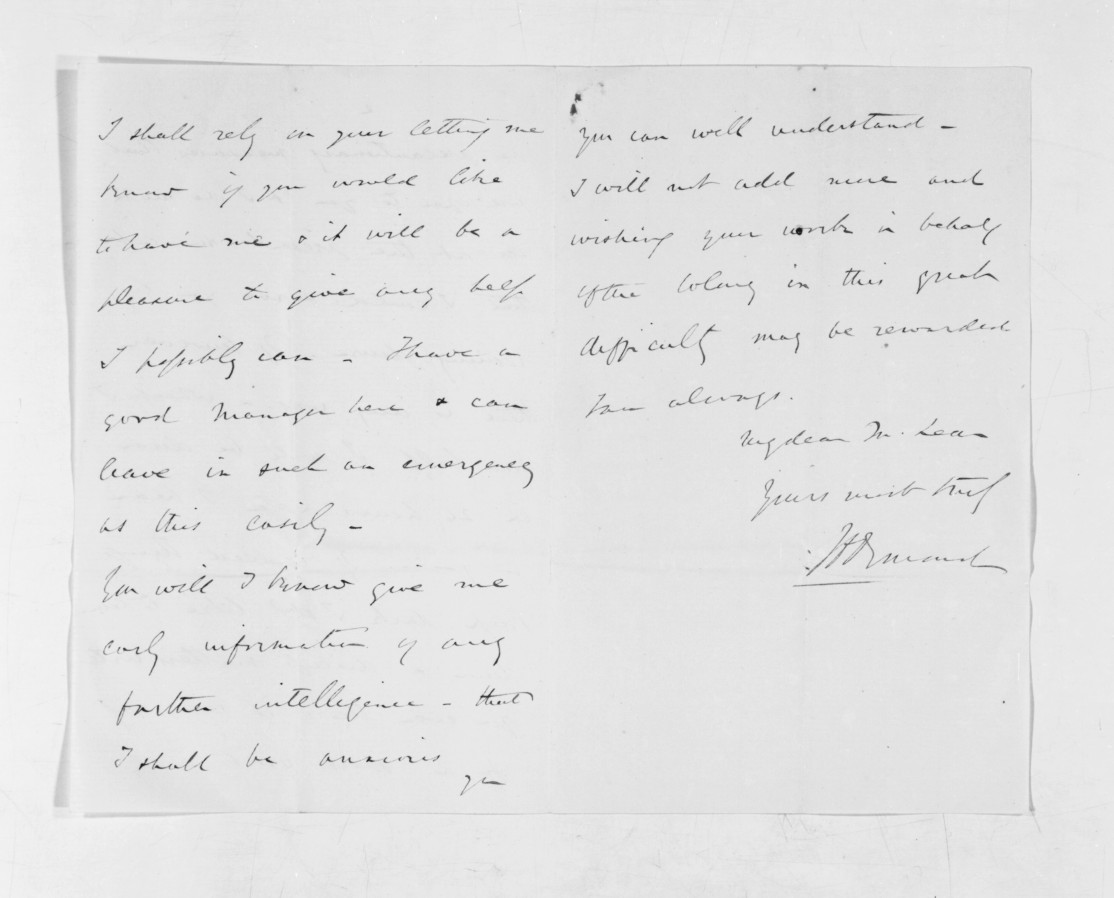 I shall rely on your letting me
know if you would like
to have me & it will be a
pleasure to give any help
I possibly can - I have a
good Manager here & can
leave in such an emergency
as this easily -
You will I know give me
early information of any
further intelligence - that
I shall be anxious
you
you can well understand -
I will not add more and
wishing your work in behalf
of the Colony in this great
difficulty may be rewarded
I am always.
My dear McLean
Yours most truly
Ormond